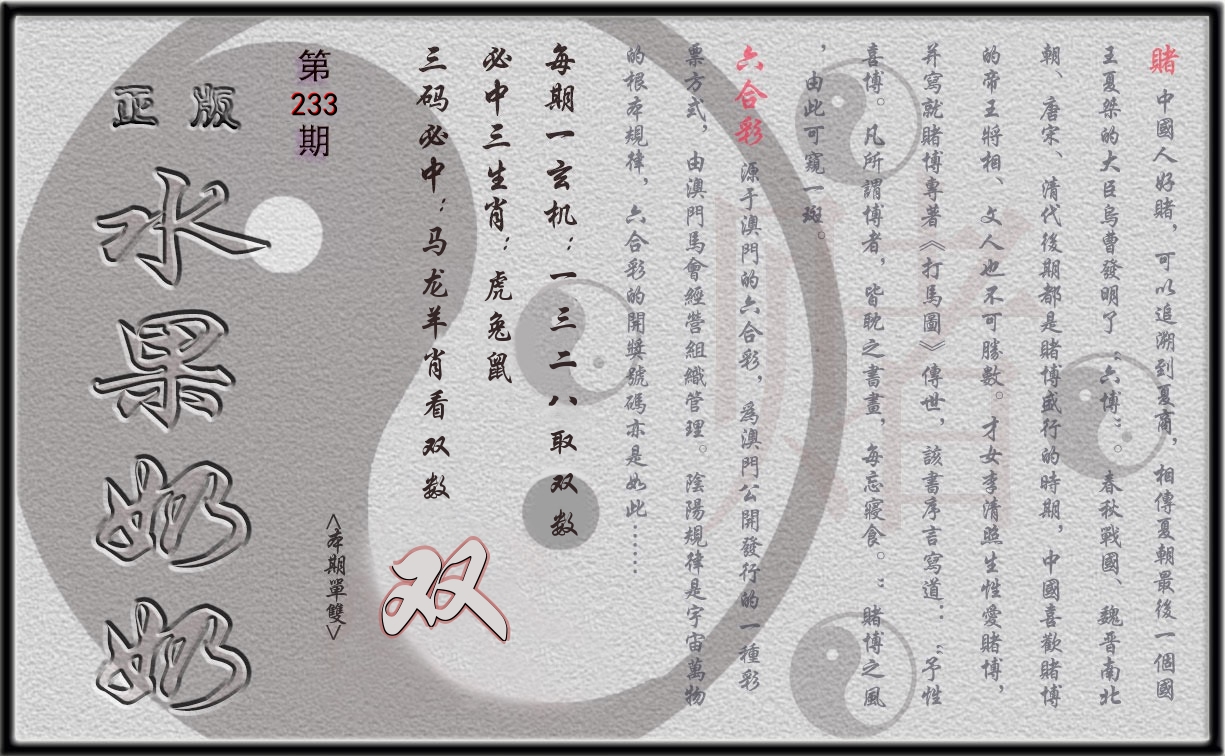 賭 中國人好賭，可以追溯到夏商，相傳夏朝最後一個國
王夏桀的大臣烏曹發明了“六博”。春秋戰國、魏晋南北
朝、唐宋、清代後期都是賭博盛行的時期，中國喜歡賭博
的帝王將相、文人也不可勝數。才女李清照生性愛賭博，
并寫就賭博專著《打馬圖》傳世，該書序言寫道：“予性
喜博。凡所謂博者，皆耽之晝畫，每忘寢食。：賭博之風
，由此可窺一斑。
六合彩 源于澳門的六合彩，為澳門公開發行的一種彩
票方式，由澳門馬會經營組織管理。陰陽規律是宇宙萬物
的根本規律，六合彩的開獎號碼亦是如此……
賭
每期一玄机：一三二八取双数
必中三生肖：虎兔鼠
三码必中：马龙羊肖看双数
双
<本期單雙>
第
233
期
正版
水果奶奶